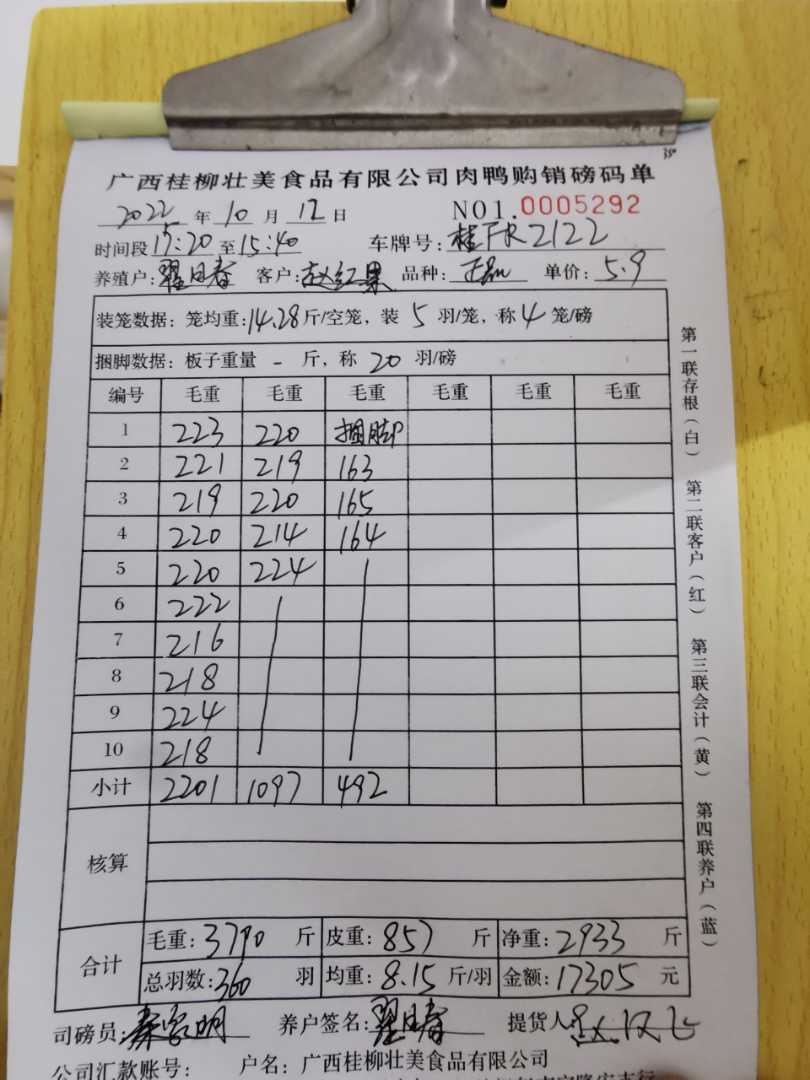 广西桂柳壮美食品有限公司肉鸭购销磅码单
2022年10月12日 NO1.0005292
时间段15:20至15:40 车牌号:桂FR2122
养殖户:翟日春 客户:赵红果 品种:正品 单价:5.9
装笼数据:笼均重:14.28斤/空笼,装5羽/笼,称4笼/磅
捆脚数据:板子重量-斤,称20羽/磅
编号 毛重 毛重 毛重 毛重 毛重 毛重
1 223 220 捆脚
2 221 219 163
3 219 220 165
4 220 214 164
5 220 224
6 222
7 216
8 218
9 224
10 218
小计 2201 1097 492
核算
合计 毛重:3790斤 皮重:857斤 净重:2933斤
总羽数:360羽 均重:8.15斤/羽 金额:17305元
司磅员:秦家明 养户签名:翟日春 提货人:
公司汇款账号: 户名:广西桂柳壮美食品有限公司
第一联存根(白) 第二联客户(红) 第三联会计(黄) 第四联养户(蓝)